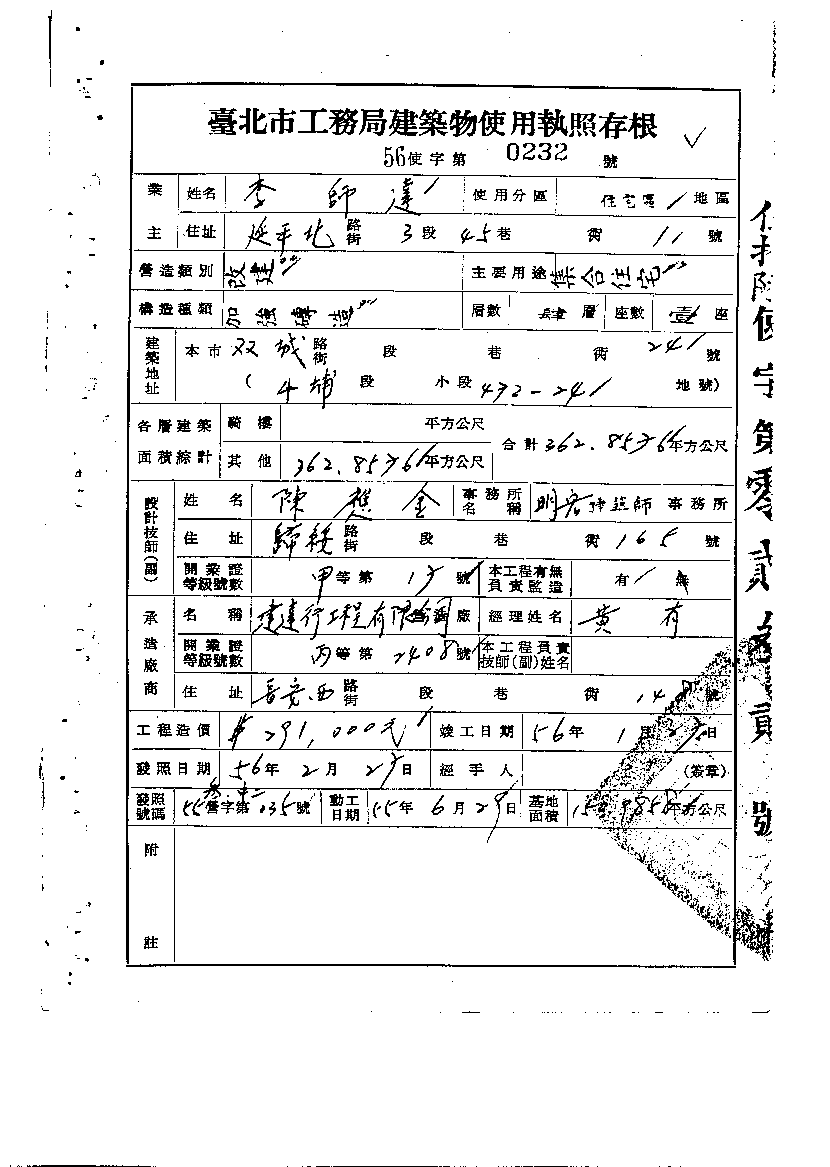 臺北市工務局建築物使用執照存根
56使字第 0232 號
業主 姓名 李師達 使用分區 住宅區 地區
住址 延平北路街 3段 45巷 衖 11號
營造類別 改建 主要用途 集合住宅
構造種類 加強磚造 層數 肆層 座數 壹座
建築地址 本市 双城路街 段 巷 衖 241號
(牛埔段 小段 432-241 地號)
各層建築面積綜計 騎樓 平方公尺 合計 平方公尺
其他 平方公尺
設計技師(副) 姓名 陳 金 事務所名稱 建築師事務所
住址 歸綏路街 段 巷 衖 165號
開業證等級號數 甲等第 號 本工程有無負責監造 有 無
承造廠商 名稱 建行工程有限公司 廠 經理姓名 黃 有
開業證等級號數 丙等第 2408號 本工程負責技師(副)姓名
住址 西路街 段 巷 衖 號
工程造價 291,000元 竣工日期 56年 1月 日
發照日期 56年 2月 日 經手人 (簽章)
發照號碼 55營字第 035號 動工日期 55年 6月 29日 基地面積 平方公尺
附註
使字第零貳 號